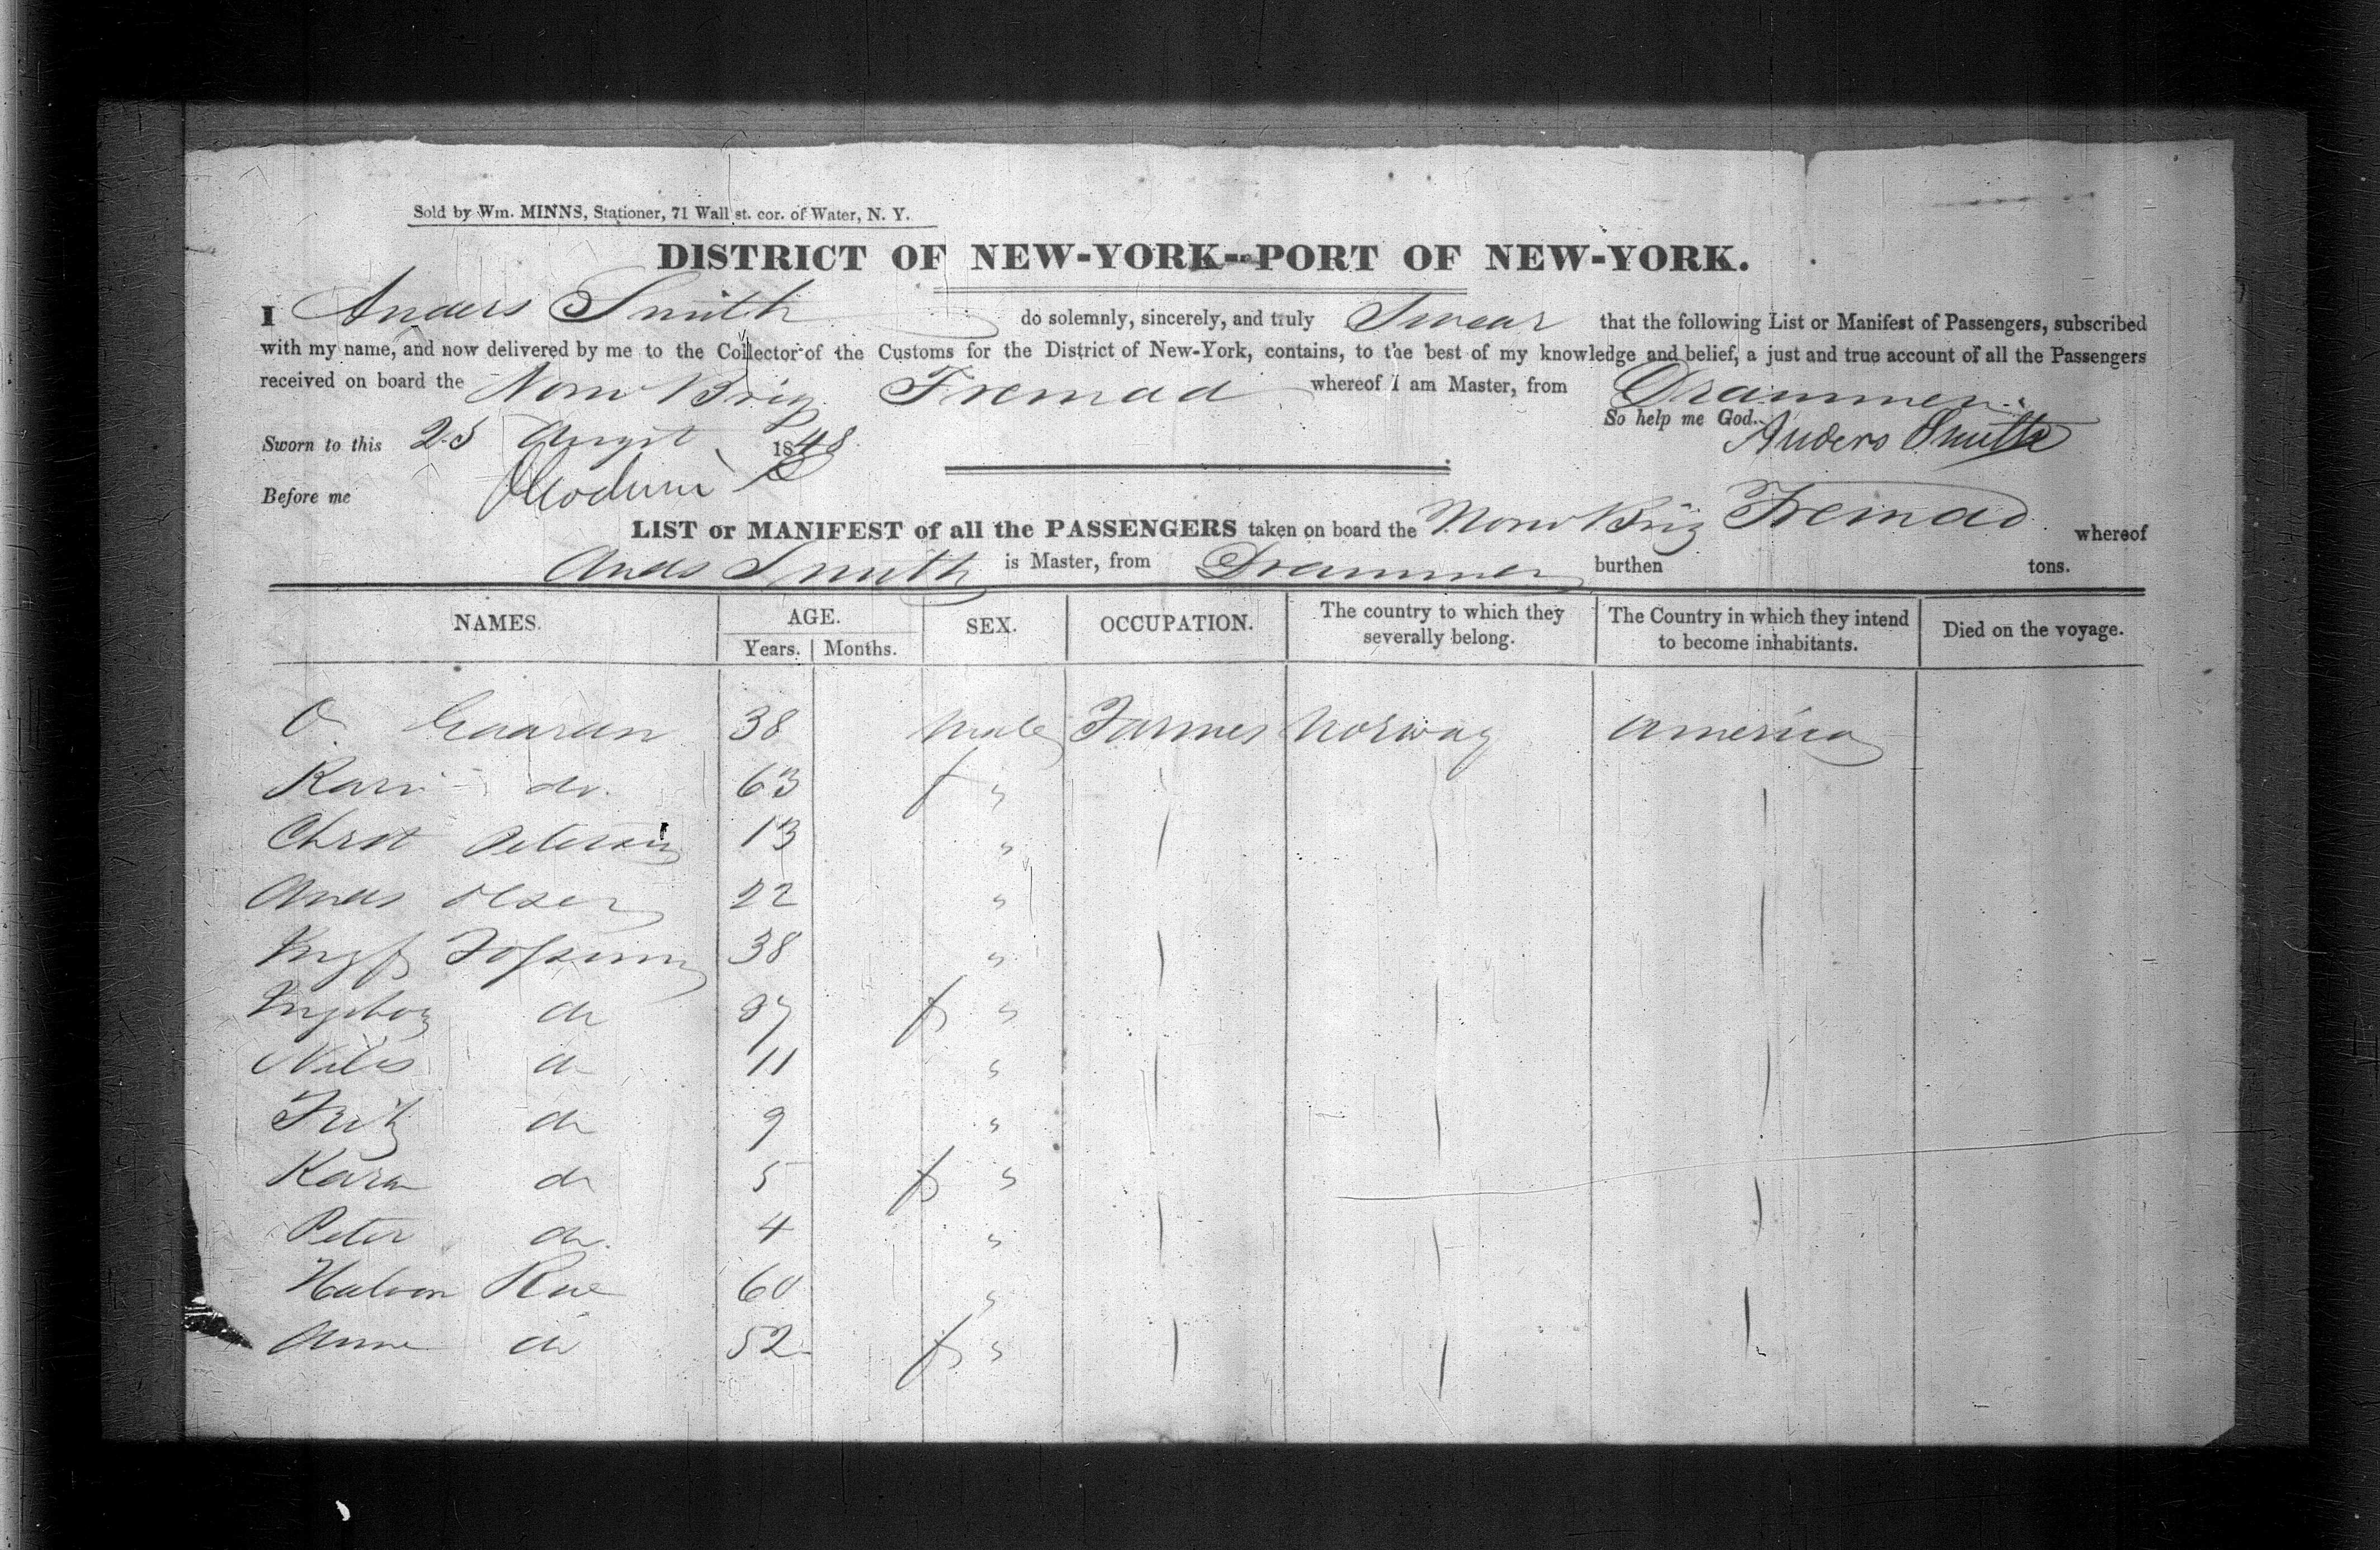 Sold by Wm. MINNS, Stationer, 71 Wall st. cor. of Water, N. Y.
DISTRICT OF NEW-YORK--PORT OF NEW-YORK.
I Anders Smith do solemnly, sincerely, and truly Swear that the following List or Manifest of Passengers, subscribed
with my name, and now delivered by me to the Collector of the Customs for the District of New-York, contains, to the best of my knowledge and belief, a just and true account of all the Passengers
received on board the Norw Brig Fremad whereof I am Master, from Drammen
So help me God.
Sworn to this 25 Augst 1848 Anders Smith
Before me
LIST or MANIFEST of all the PASSENGERS taken on board the Norw Brig Fremad whereof
Anders Smith is Master, from Drammen burthen tons.
NAMES. AGE. SEX. OCCUPATION. The country to which they severally belong. The Country in which they intend to become inhabitants. Died on the voyage.
Years. Months.
O. Gaaran 38 Male Farmer Norway America
Kari do. 63 f "
Christ Peterson 13 "
Anders Olsen 22 "
38 "
Ingeborg do 37 f "
Nils do 11 "
Fritz do 9 "
Karen do 5 f "
Peter do. 4 "
Halvor Rue 60 "
Anne do 52 f "